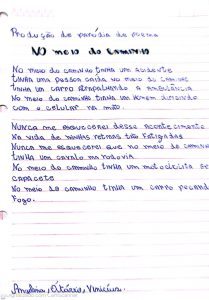 Produção de parodia do poema
No meio do caminho
No meio do caminho tinha um acidente
tinha uma pessoa caida no meio do caminho
tinha um carro atrapalhando a ambulância
No meio do caminho tinha um homem
com o celular na mão.
Nunca me esquecerei desse acontecimento
Na vida de minhas retinas tão fatigadas
Nunca me esquecerei que no meio do caminho
tinha um cavalo na rodovia
No meio do caminho tinha um motociclista sem
capacete
No meio do caminho tinha um carro pegando
Fogo.
Angelina, Otávio, Vinícius.